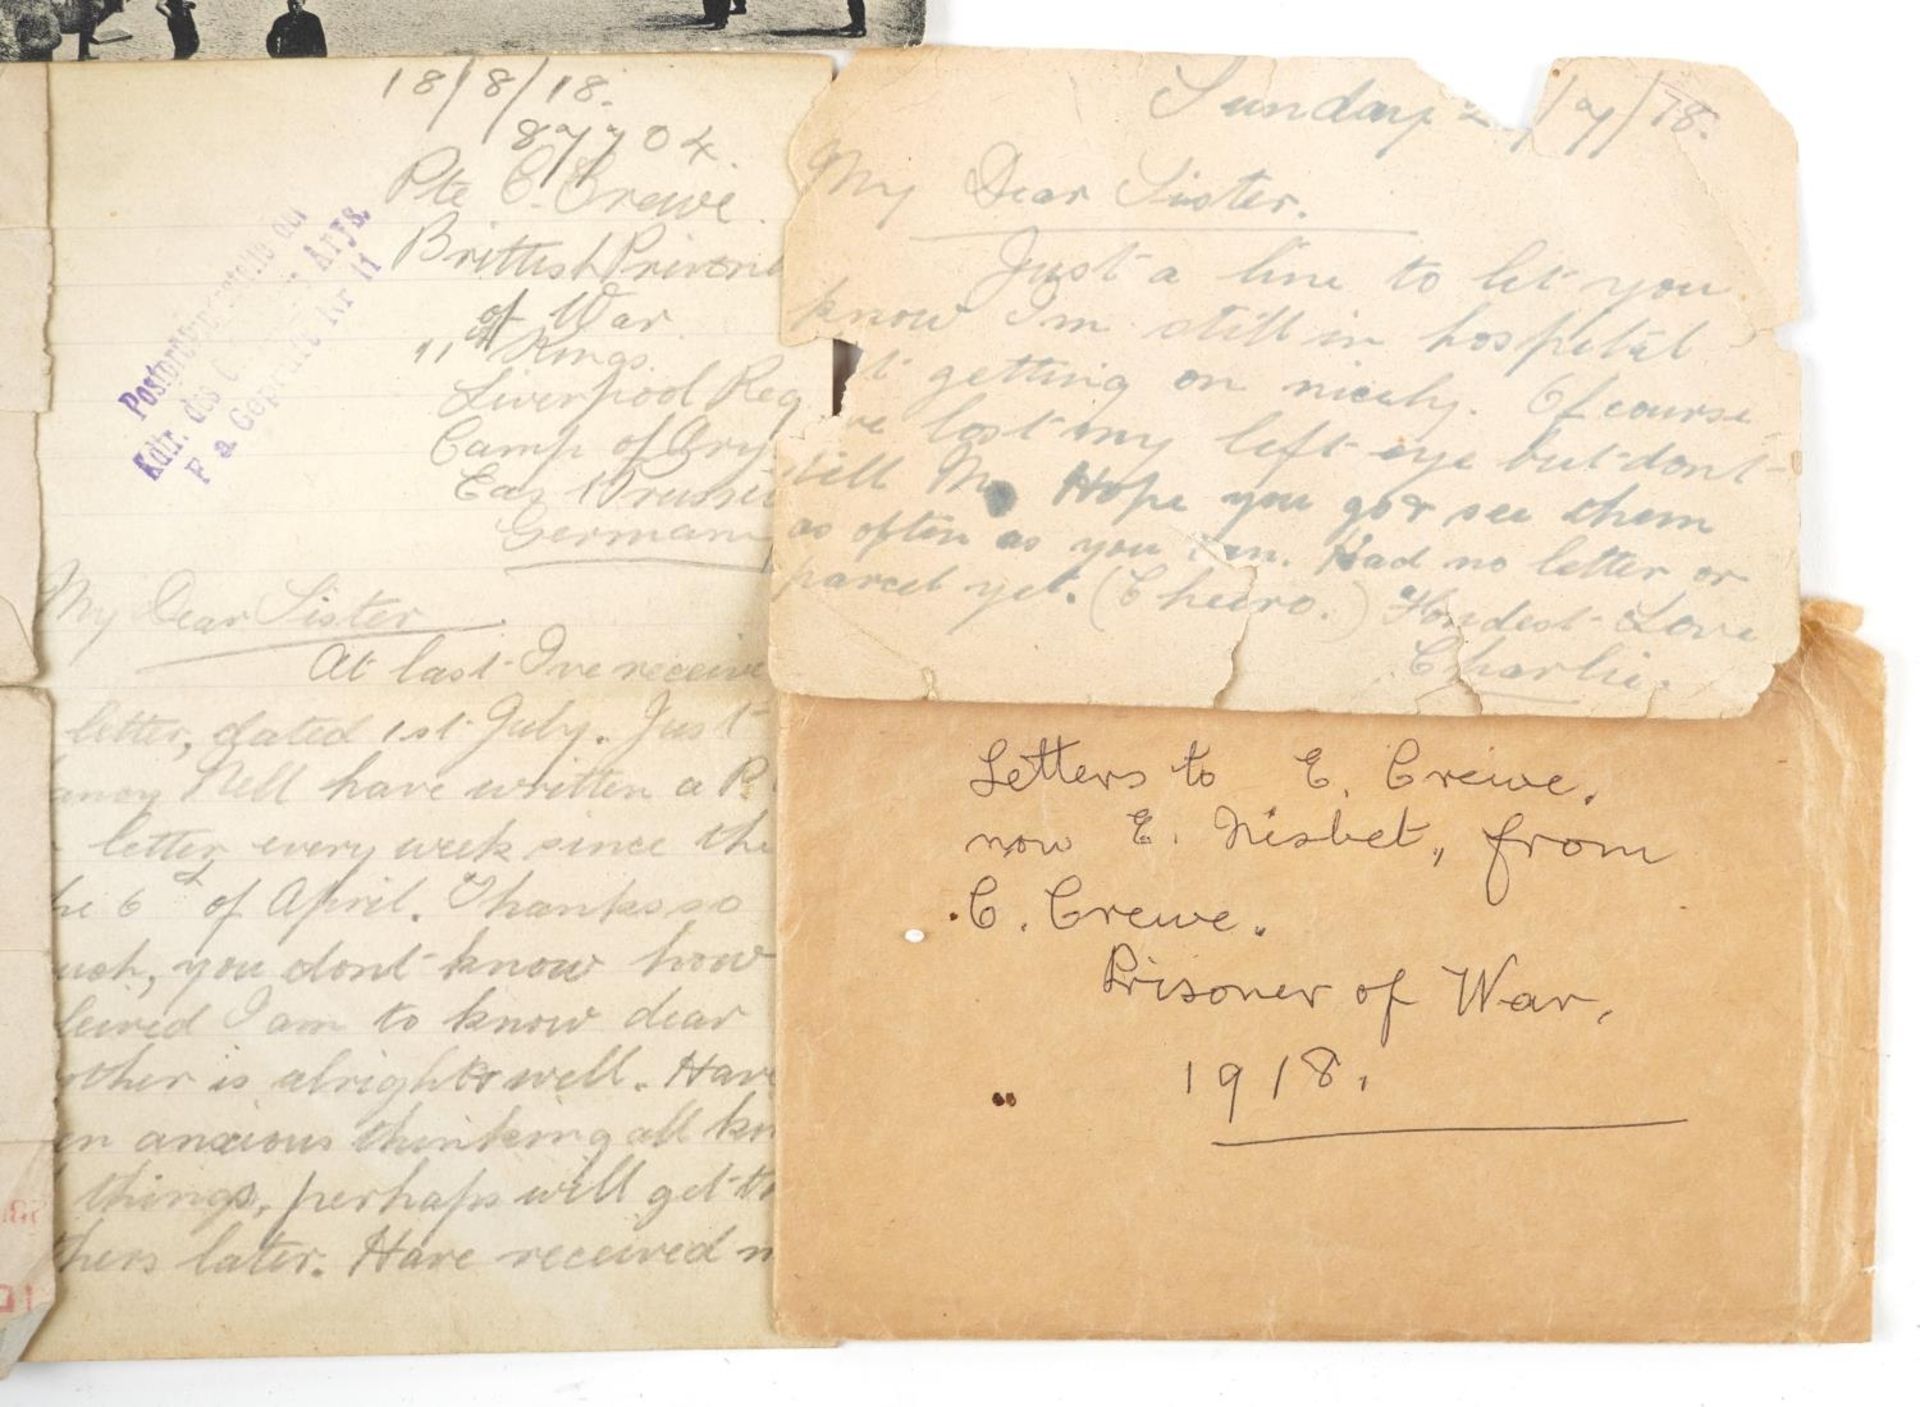 18/8/18.
87704.
Pte C. Crewe.
Brittish
of War
11th Kings.
Liverpool Reg
Camp of Ary
Eas Prussi
German
Kdtr. des
F a Geprüft Nr 11
Arys.
My Dear Sister
At last I've receive
letter, dated 1st July. Just
ancy Nell have written a P.
letter every week since the
he 6th of April. Thanks so
uch, you dont know how
leived I am to know dear
other is alright & well. Have
en anxious thinking all kn
things, perhaps will get th
thers later. Have received n
Sunday 2 /7/18.
My Dear Sister.
Just a line to let you
know I'm still in hospital
t getting on nicely. Of course
ve lost my left eye but dont
tell M Hope you go & see them
as often as you can. Had no letter or
parcel yet. (Cheero.) Fondest Love
Charlie.
Letters to E. Crewe.
now E. Nisbet, from
C. Crewe.
Prisoner of War,
1918.